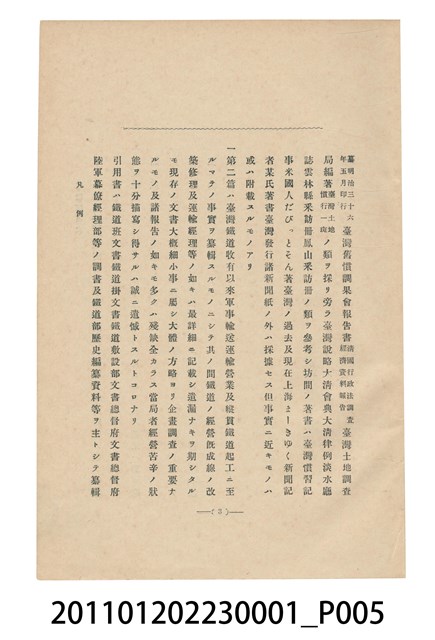 纂明治三十六年五月印行臺灣舊慣調果會報告書清國行政法調査經濟資料報告臺灣土地調査
局編著臺灣土地慣行一斑ノ類ヲ採リ旁ラ臺灣說略大清會典大清律例淡水廳
誌雲林縣采訪冊鳳山采訪冊ノ類ヲ參考シ坊間ノ著書ハ臺灣慣習記
事米國人だびっとそん著臺灣ノ過去及現在上海まーきゆく新聞記
者某氏著書臺灣發行諸新聞紙ノ外ハ採據セス但事實ニ近キモノハ
或ハ附載スルモノアリ
一第二篇ハ臺灣鐵道收有以來軍事輸送運輸營業及縱貫鐵道起工ニ至
ルマテノ事實ヲ纂輯スルモノニシテ其ノ間鐵道ノ經營既成線ノ改
築修理及運輸經理等ノ如キハ最詳細ニ記載シ遺漏ナキヲ期シタル
モ現存ノ文書大概細小事ニ屬シ大體ノ方略ヨリ企畫調査ノ重要ナ
ルモノ及諸報告ノ如キモ多クハ殘缺全カラス當局者經營苦辛ノ狀
態ヲ十分描寫シ得サルハ誠ニ遺憾トスルトコロナリ
引用書ハ鐵道班文書鐵道掛文書鐵道敷設部文書總督府文書總督府
陸軍幕僚經理部等ノ調書及鐵道部歷史編纂資料等ヲ主トシテ纂輯
凡例
( 3 )
201101202230001_P005